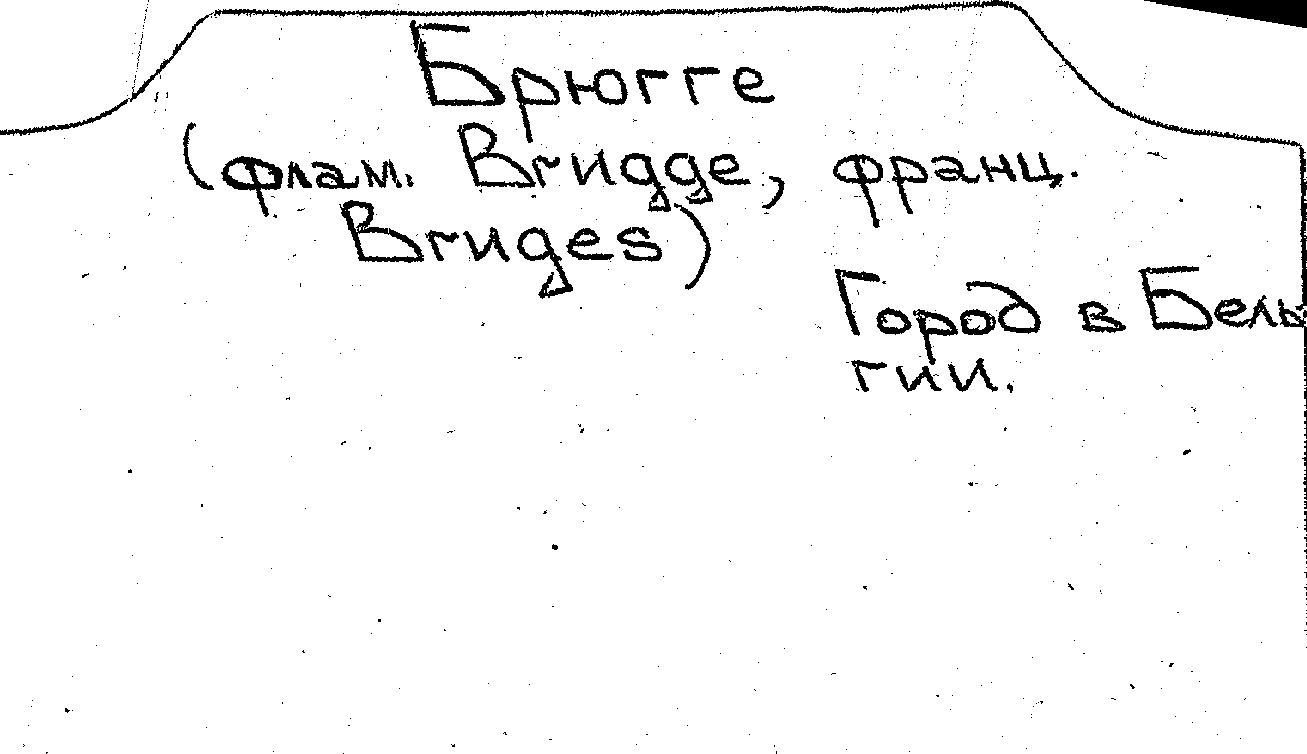 Брюгге
(флам. Brugge, франц.
Bruges)
Город в Бель
гии.